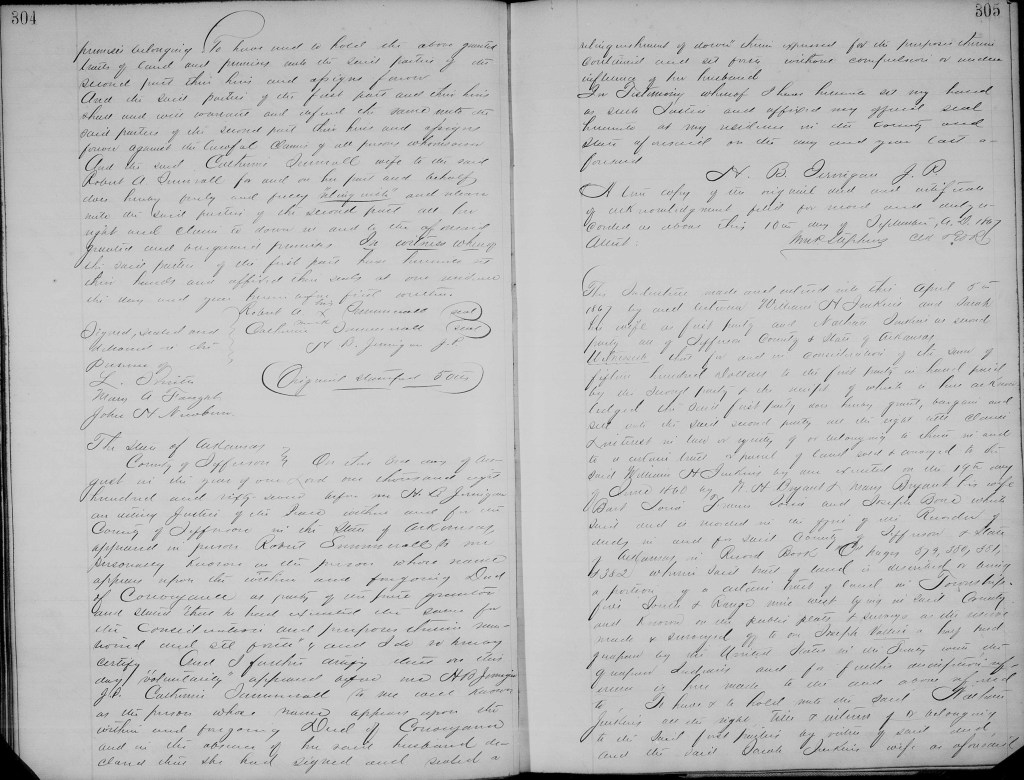 304
premises belonging To have and to hold the above granted
tracts of land and premises unto the said parties of the
second part their heirs and assigns forever
And the said parties of the first part and their heirs
shall and will warrant and defend the same unto the
said parties of the second part their heirs and assigns
forever against the lawful claims of all persons whomsoever
And the said Catherine Summerall wife to the said
Robert A Summerall for and on her part and behalf
does hereby and freely and release
unto the said parties of the second part all her
right and claim to dower in and to the aforesaid
granted and bargained premises In witness whereof
the said parties of the first part have hereunto set
their hands and affixed their seals at our residence
the day and year herein first written
Robert A. X Summerall (seal)
Signed, sealed and Catherine Summerall (seal)
delivered in the H B Jernigan J.P.
Presence of
L. White (Original Stamped)
Mary A
John H Newbern.
The State of Arkansas
County of Jefferson On this day of Au-
gust in the year of our Lord one thousand eight
hundred and sixty seven before me H B Jernigan
an acting Justice of the Peace within and for the
County of Jefferson in the State of Arkansas,
appeared in person Robert Summerall to me
personally known as the person whose name
appears upon the within and foregoing Deed
of Conveyance as party of the first grantor
and stated that he had executed the same for
the consideration and purposes therein men-
tioned and set forth & I do so hereby
certify And I further certify that on this
day "voluntarily" appeared before me H B Jernigan
J.P. Catherine Summerall to me well known
as the person whose name appears upon the
within and foregoing Deed of Conveyance
and in the absence of her said husband de-
clared that she had signed and sealed a
305
relinquishment of dower therein expressed for the purposes therein
contained and set forth without compulsion or undue
influence of her husband
In Testimony whereof I have hereunto set my hand
as such Justice and affixed my official seal
hereunto at my residence in the County and
State aforesaid on the day and year last a-
foresaid
H. B. Jernigan J P
A true copy of the original deed and certificate
of acknowledgment filed for record and duly re-
corded as above this 10th day of September, A.D. 1867
Attest: Stephens Clk
This Indenture made and entered into this April 5th
1867 by and between William H Jenkins and Sarah
his wife as first party and Nathan Jenkins as second
party all of Jefferson County & State of Arkansas
Witnesseth that for and in consideration of the sum of
fifteen hundred dollars to the first party in hand paid
by the second party & the receipt of which is here acknow-
ledged the said first party does hereby grant, bargain and
sell unto the said second party all the right title claim
& interest in law or equity of or belonging to them in and
to a certain tract or parcel of land sold & conveyed to the
said William H Jenkins by deed executed on the 19th day
of June 1860 by N. H Bryant & Mary Bryant his wife
and Joseph Bone which
said deed is recorded in the office of the Recorder of
deeds in and for said County of Jefferson & State
of Arkansas in Record Book "C" pages 379, 380, 381,
& 382 wherein said tract of land is described as being
a portion of a certain tract of land in Township
five South & Range nine west lying in said County
and known on the public plats & surveys as the reserve
made & surveyed off to one Joseph a half breed
quapaw by the United States in the Treaty with the
quapaw Indians and for further description ref-
erence is here made to the deed above referred
to, To have & to hold unto the said Nathan
Jenkins all the right title & interest of or belonging
to the said first parties by virtue of said deed,
And the said Sarah Jenkins wife as aforesaid